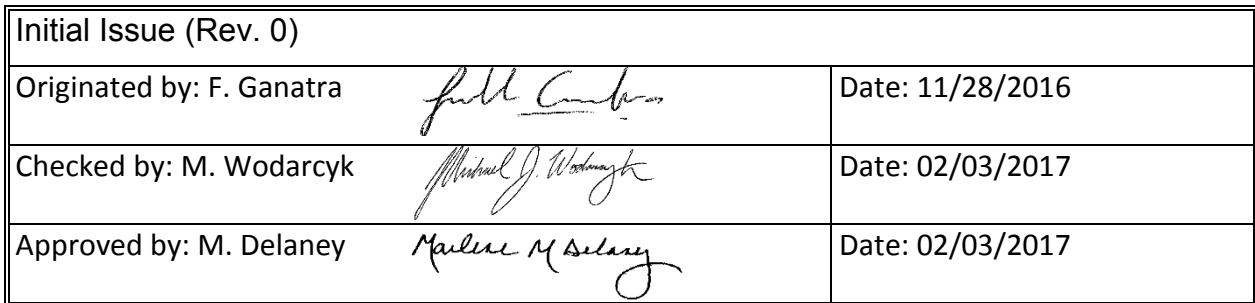 Initial Issue (Rev. 0)
Originated by: F. Ganatra Date: 11/28/2016
Checked by: M. Wodarcyk Michael J. Wodarcyk Date: 02/03/2017
Approved by: M. Delaney Marlene M Delaney Date: 02/03/2017